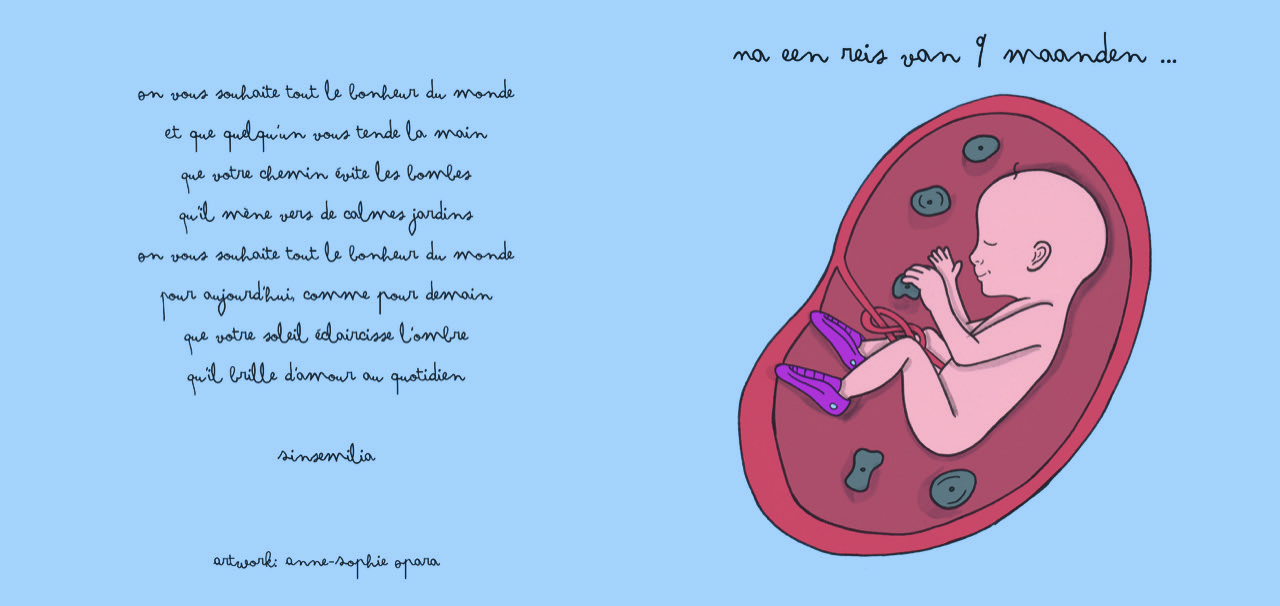 on vous souhaite tout le bonheur du monde
et que quelqu'un vous tende la main
que votre chemin évite les bombes
qu'il mène vers de calmes jardins
on vous souhaite tout le bonheur du monde
pour aujourd'hui, comme pour demain
que votre soleil éclaircisse l'ombre
qu'il brille d'amour au quotidien
sinsemilia
artwork: anne-sophie opara
na een reis van 9 maanden ...